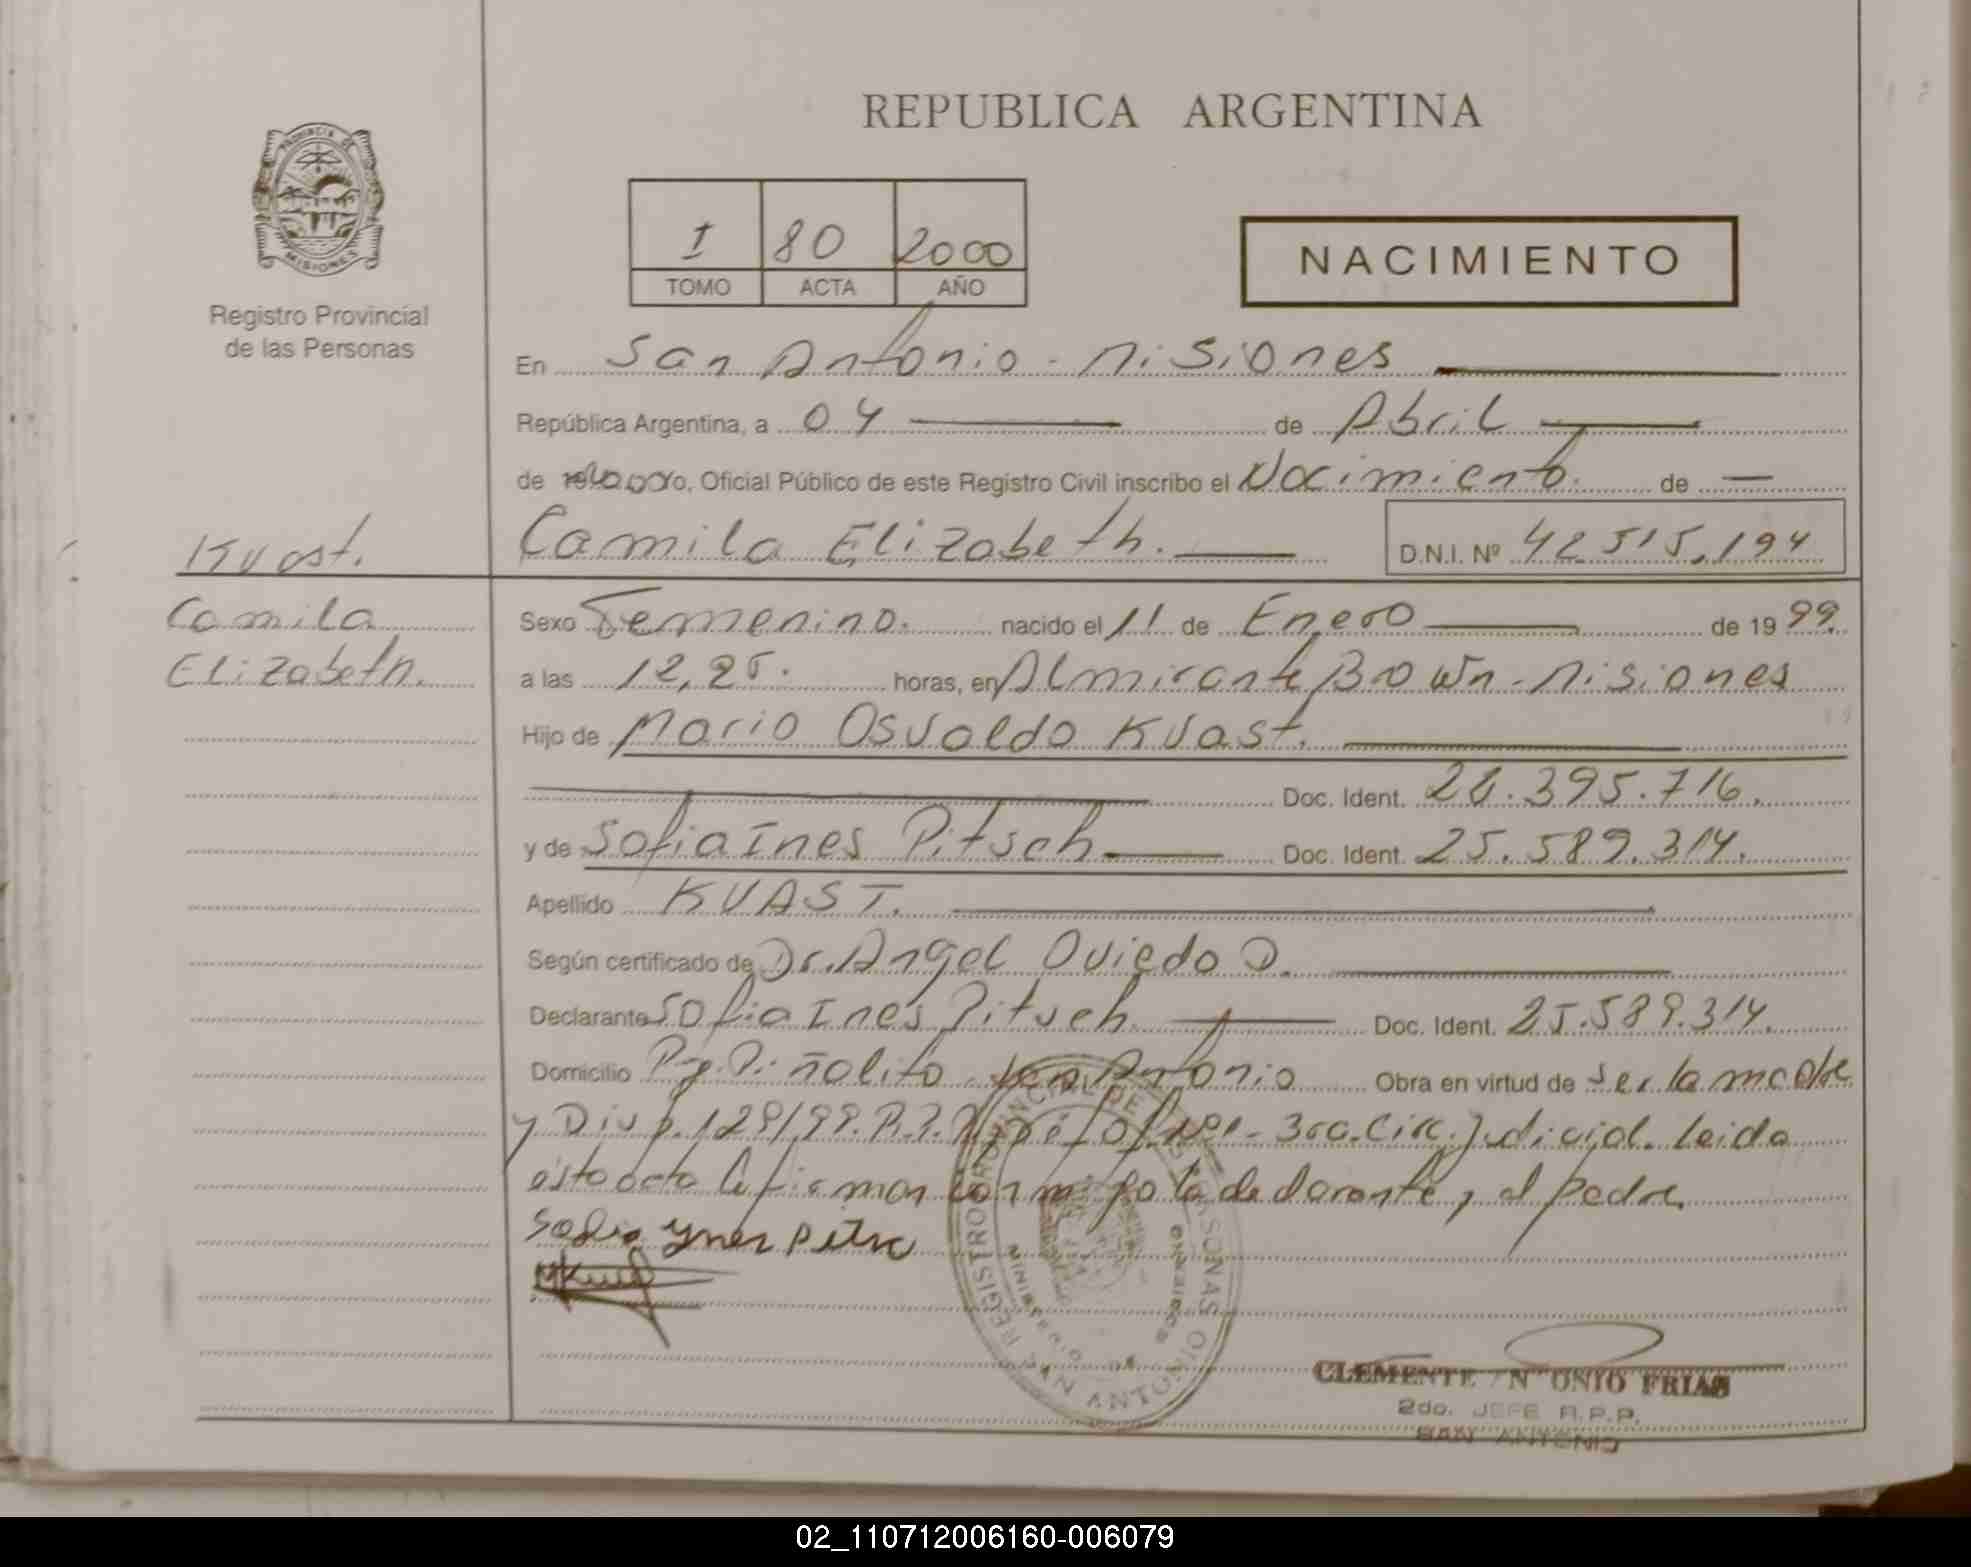 REPUBLICA ARGENTINA
PROVINCIA DE
MISIONES
Registro Provincial
de las Personas
I 80 2000
TOMO ACTA AÑO
NACIMIENTO
En San Antonio - Misiones
República Argentina, a 04 de Abril
de yo, Oficial Público de este Registro Civil inscribo el Nacimiento. de —
Kvast.
Camila Elizabeth. D.N.I. Nº 42 515.194
Camila
Elizabeth.
Sexo Femenino. nacido el 11 de Enero de 19 99.
a las 12,25. horas, en Almirante Brown - Misiones
Hijo de Mario Osvaldo Kvast.
Doc. Ident. 395.716.
y de Sofia Ines Pitsch Doc. Ident. 25.589.314.
Apellido KVAST.
Según certificado de Dr. Angel Oviedo D.
Declarante Sofia Ines Pitsch. Doc. Ident. 25.589.314.
Domicilio Piñalito San Antonio Obra en virtud de Ser la madre
y 3ra. Circ. Judicial. Leida
esta acta la firman con migo la declarante y el padre.
Sofia Ynes
REGISTRO PROVINCIAL DE PERSONAS
SAN ANTONIO
CLEMENTE ANTONIO FRIAS
2do. JEFE R.P.P.
SAN ANTONIO
02_110712006160-006079